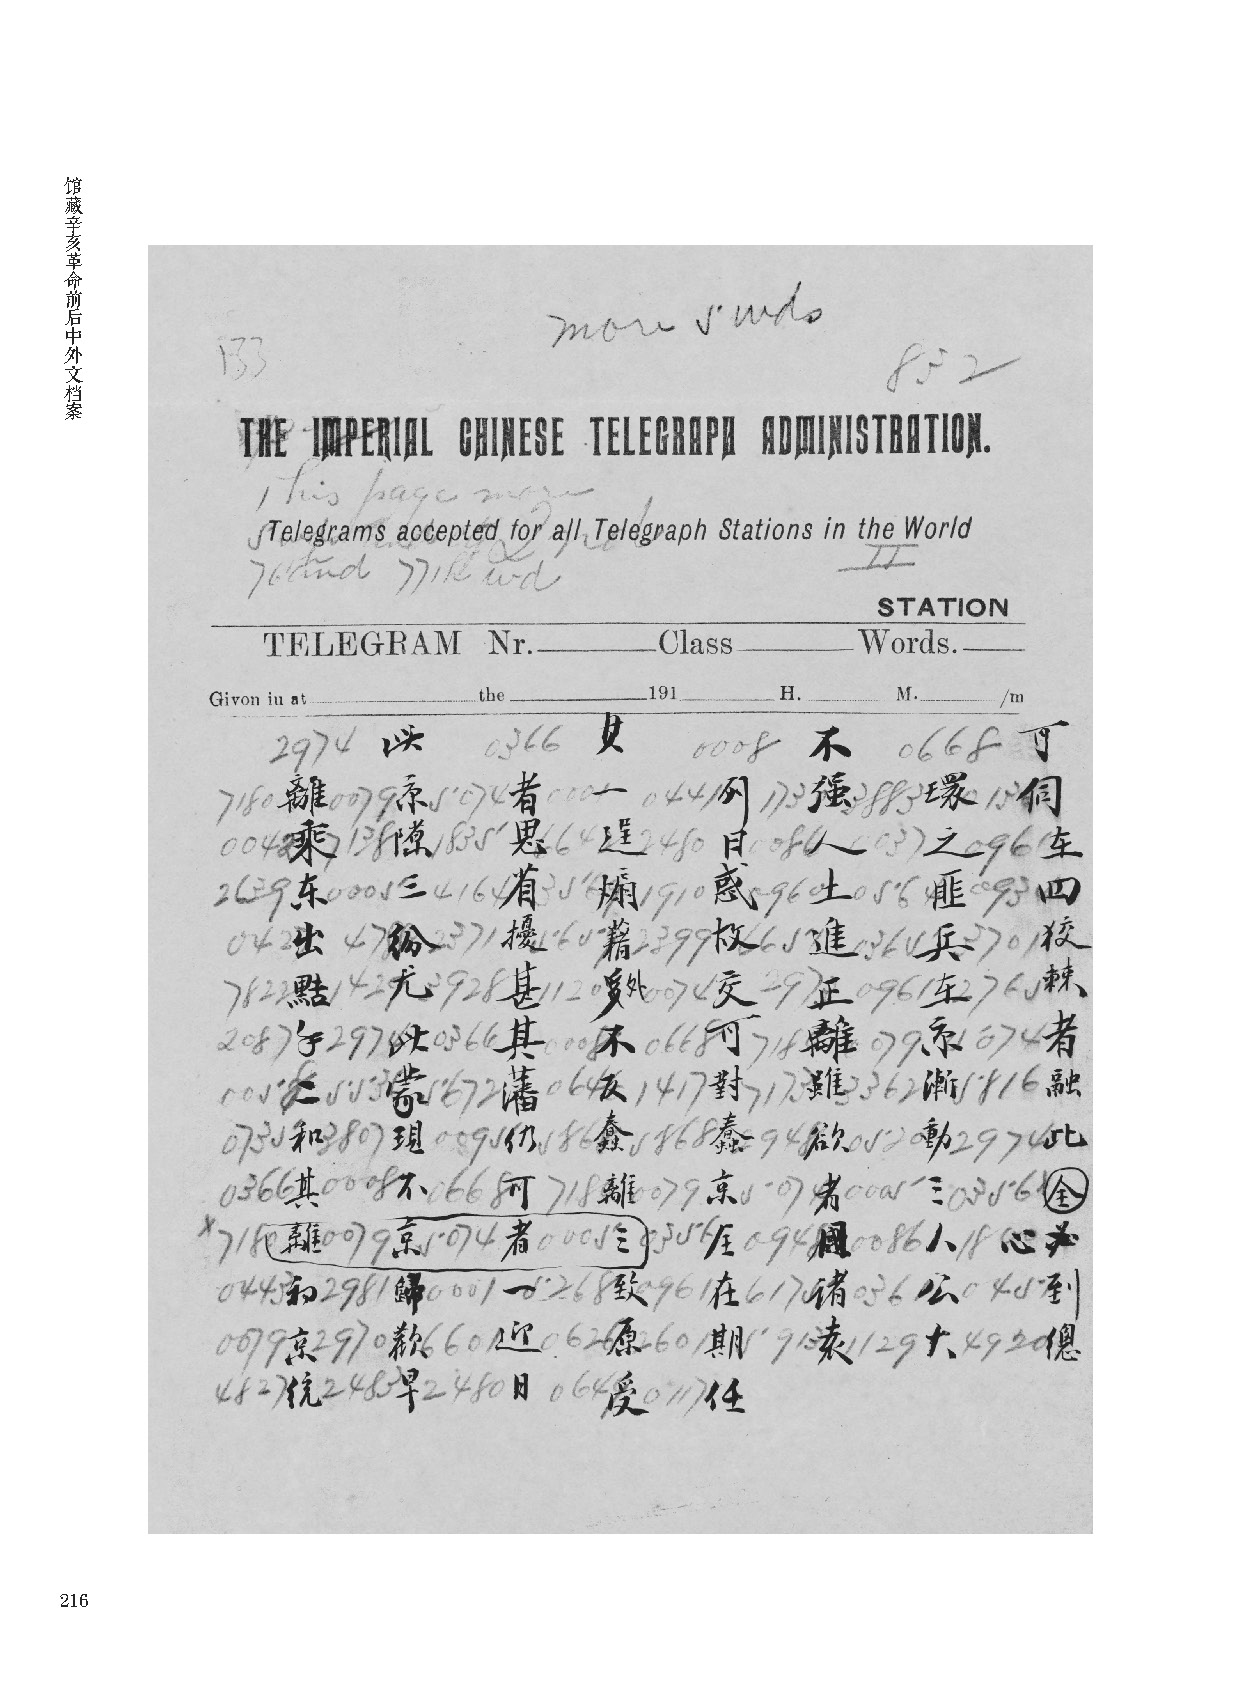 馆藏辛亥革命前后中外文档案
more 5 wds
133
852
THE IMPERIAL CHINESE TELEGRAPH ADMINISTRATION.
This page more
Telegrams accepted for all Telegraph Stations in the World
76 and 77th wd
II
STATION
TELEGRAM Nr. Class Words.
Given in at the 191 H. M. /m
2974 此 0366 其 0008 不 0668 可
7180 離 0079 京 5074 者 0001 一 0441 列 173 强 3883 環 013 伺
0042 乘 7138 隙 1835 思 664 逞 2480 日 0086 人 0037 之 0961 在
2639 东 0005 三 4164 省 35 煽 1910 惑 0960 土 0564 匪 093 四
0427 出 478 紛 2371 擾 565 藉 2399 故 665 進 0365 兵 3701 狡
7822 點 1429 尤 3928 甚 1120 外 0074 交 297 正 0961 在 2765 棘
2087 手 2974 此 0366 其 0008 不 0668 可 718 離 079 京 5074 者
005 二 553 蒙 5672 藩 0646 反 1417 對 7173 雖 3362 漸 5816 融
0735 和 3807 現 0095 仍 5868 蠢 5868 蠢 2948 欲 0520 動 2974 此
0366 其 0008 不 0668 可 718 離 0079 京 5074 者 0005 三 0356 全
x 7180 離 0079 京 5074 者 0005 三 0356 全 0948 國 0086 人 18 心 必
0443 初 2981 歸 0001 一 5268 致 0961 在 6175 诸 0361 公 045 到
0079 京 2970 歡 6601 迎 0626 原 2601 期 5913 袁 1129 大 4920 總
4827 統 2483 早 2480 日 0649 受 0117 任
216